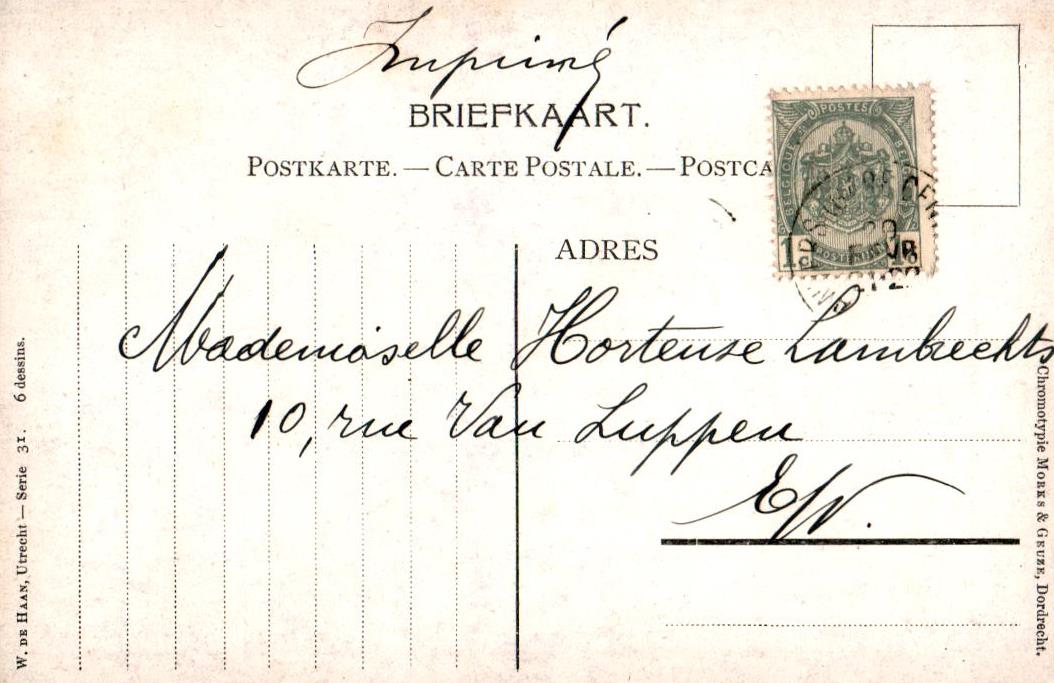 Imprimé
BRIEFKAART.
POSTKARTE. — CARTE POSTALE. — POSTCA
POSTES
BELGIQUE
1
ADRES
Mademoiselle Hortense Lambrechts
10, rue Van Luppen
E/V.
W. DE HAAN, Utrecht — Serie 31. 6 dessins.
Chromotypie MORKS & GEUZE, Dordrecht.